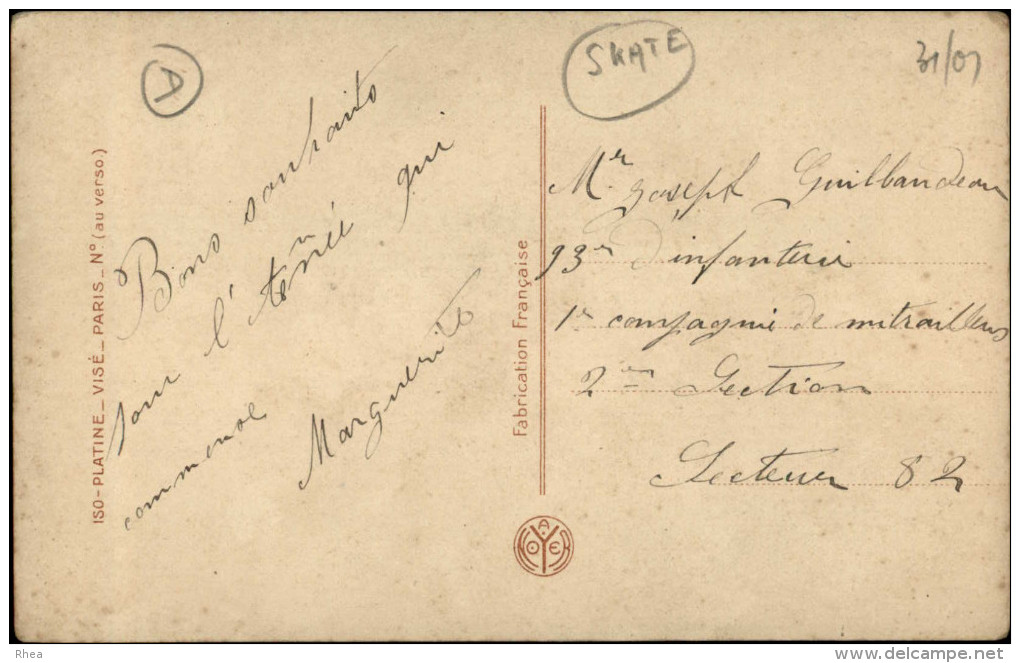 A
SKATE
31/01
ISO-PLATINE_VISÉ_PARIS_N° (au verso.)
Bons souhaits
pour l'année qui
commence
Marguerite
Fabrication Française
Mr Joseph Guilbaudeau
93e d'infanterie
1e compagnie de mitrailleurs
2em Section
Secteur 82
A. NOYER
Rhea
delcampe.net